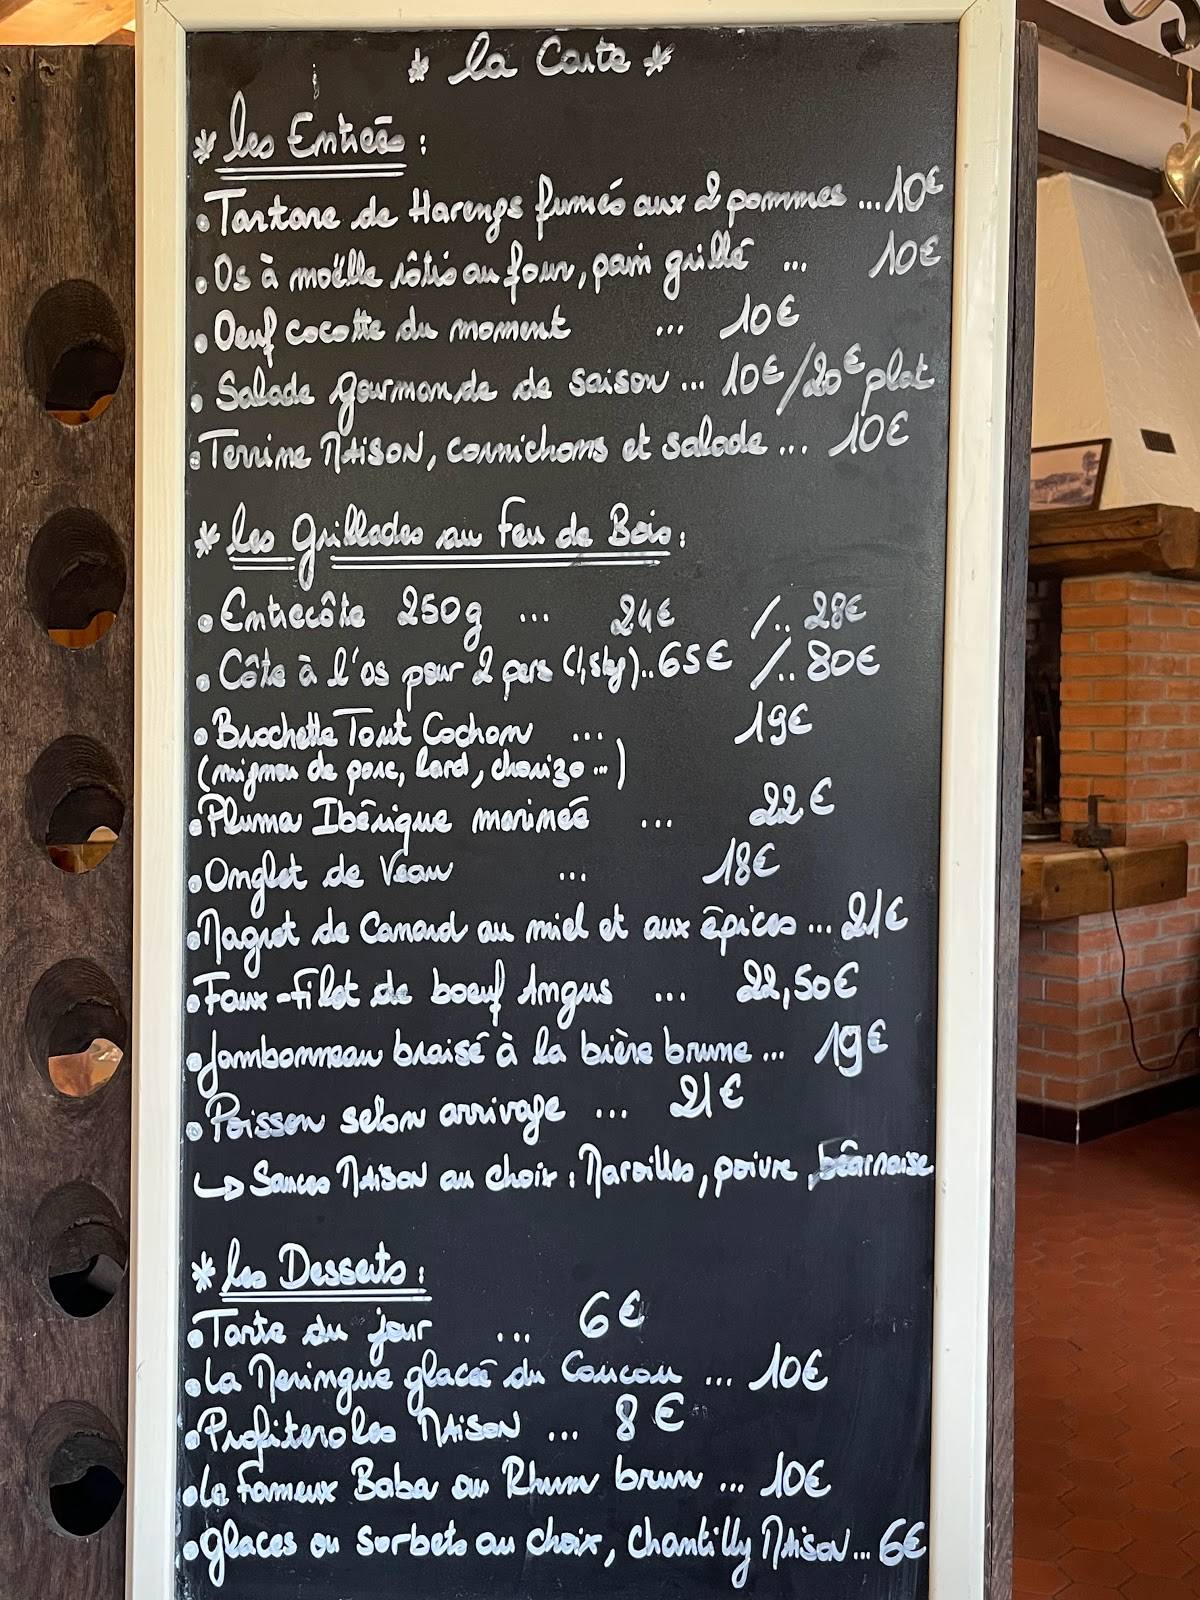 * La Carte *
* Les Entrées :
• Tartare de Harengs fumés aux 2 pommes ... 10€
• Os à moëlle rôtis au four, pain grillé ... 10€
• Oeuf cocotte du moment ... 10€
• Salade gourmande de saison ... 10€/20€ plat
• Terrine MAISON, cornichons et salade ... 10€
* Les Grillades au Feu de Bois :
• Entrecôte 250g ... 24€ /.. 28€
• Côte à l'os pour 2 pers (1,5kg)..65€ /.. 80€
• Brochette Tout Cochon ... 19€
(mignon de porc, lard, chorizo ...)
• Pluma Ibérique marinée ... 22€
• Onglet de Veau ... 18€
• Magret de Canard au miel et aux épices ... 21€
• Faux-Filet de boeuf Angus ... 22,50€
• Jambonneau braisé à la bière brune ... 19€
• Poisson selon arrivage ... 21€
↳ Sauces MAISON au choix : Maroilles, poivre, béarnaise
* Les Desserts :
• Tarte du jour ... 6€
• La Meringue glacée du Coucou ... 10€
• Profiteroles MAISON ... 8€
• Le Fameux Baba au Rhum brun ... 10€
• Glaces ou Sorbets au choix, Chantilly MAISON ... 6€